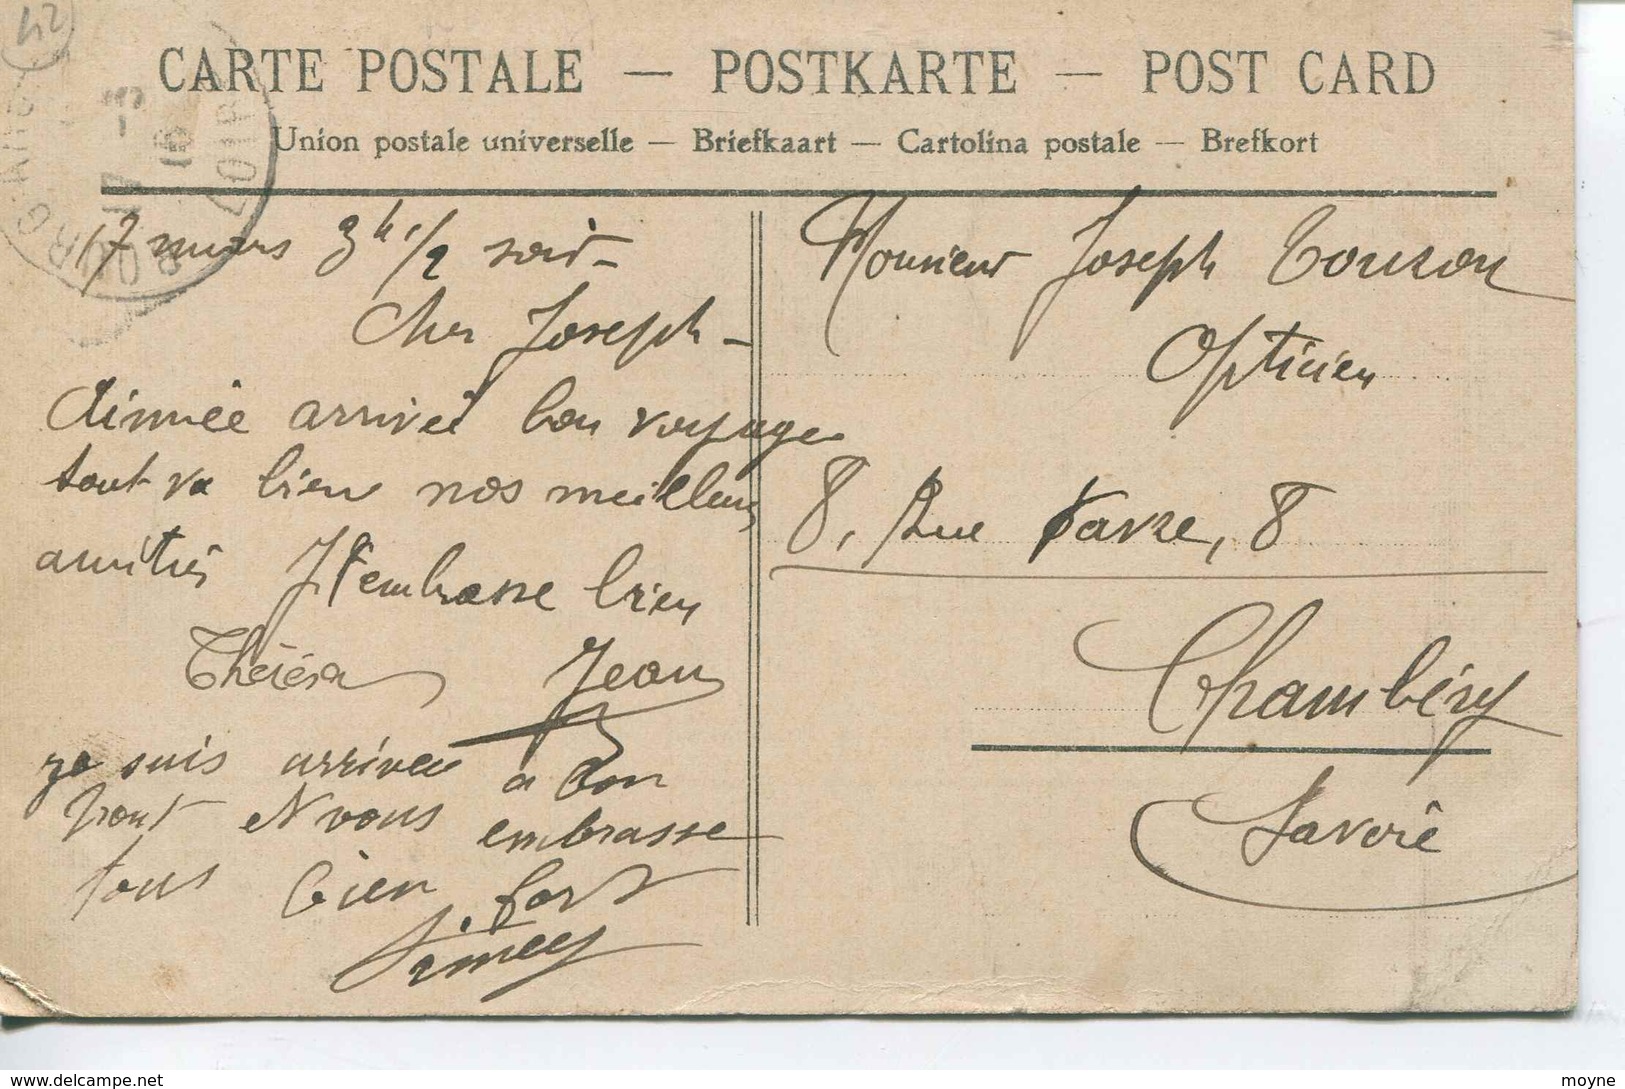 42
CARTE POSTALE — POSTKARTE — POST CARD
Union postale universelle — Briefkaart — Cartolina postale — Brefkort
BOURG-ARG
LOIRE
17 mars 3h 1/2 soir -
Cher Joseph -
Aimée arrivée bon voyage
tout va bien nos meilleurs
amitiés J t'embrasse bien
Thérésa Jean
je suis arrivée a bon
port et vous embrasse
tous bien fort
Aimée
Monsieur Joseph Touzon
Opticien
8, Rue Favre, 8
Chambéry
Savoie
www.delcampe.net
moyne